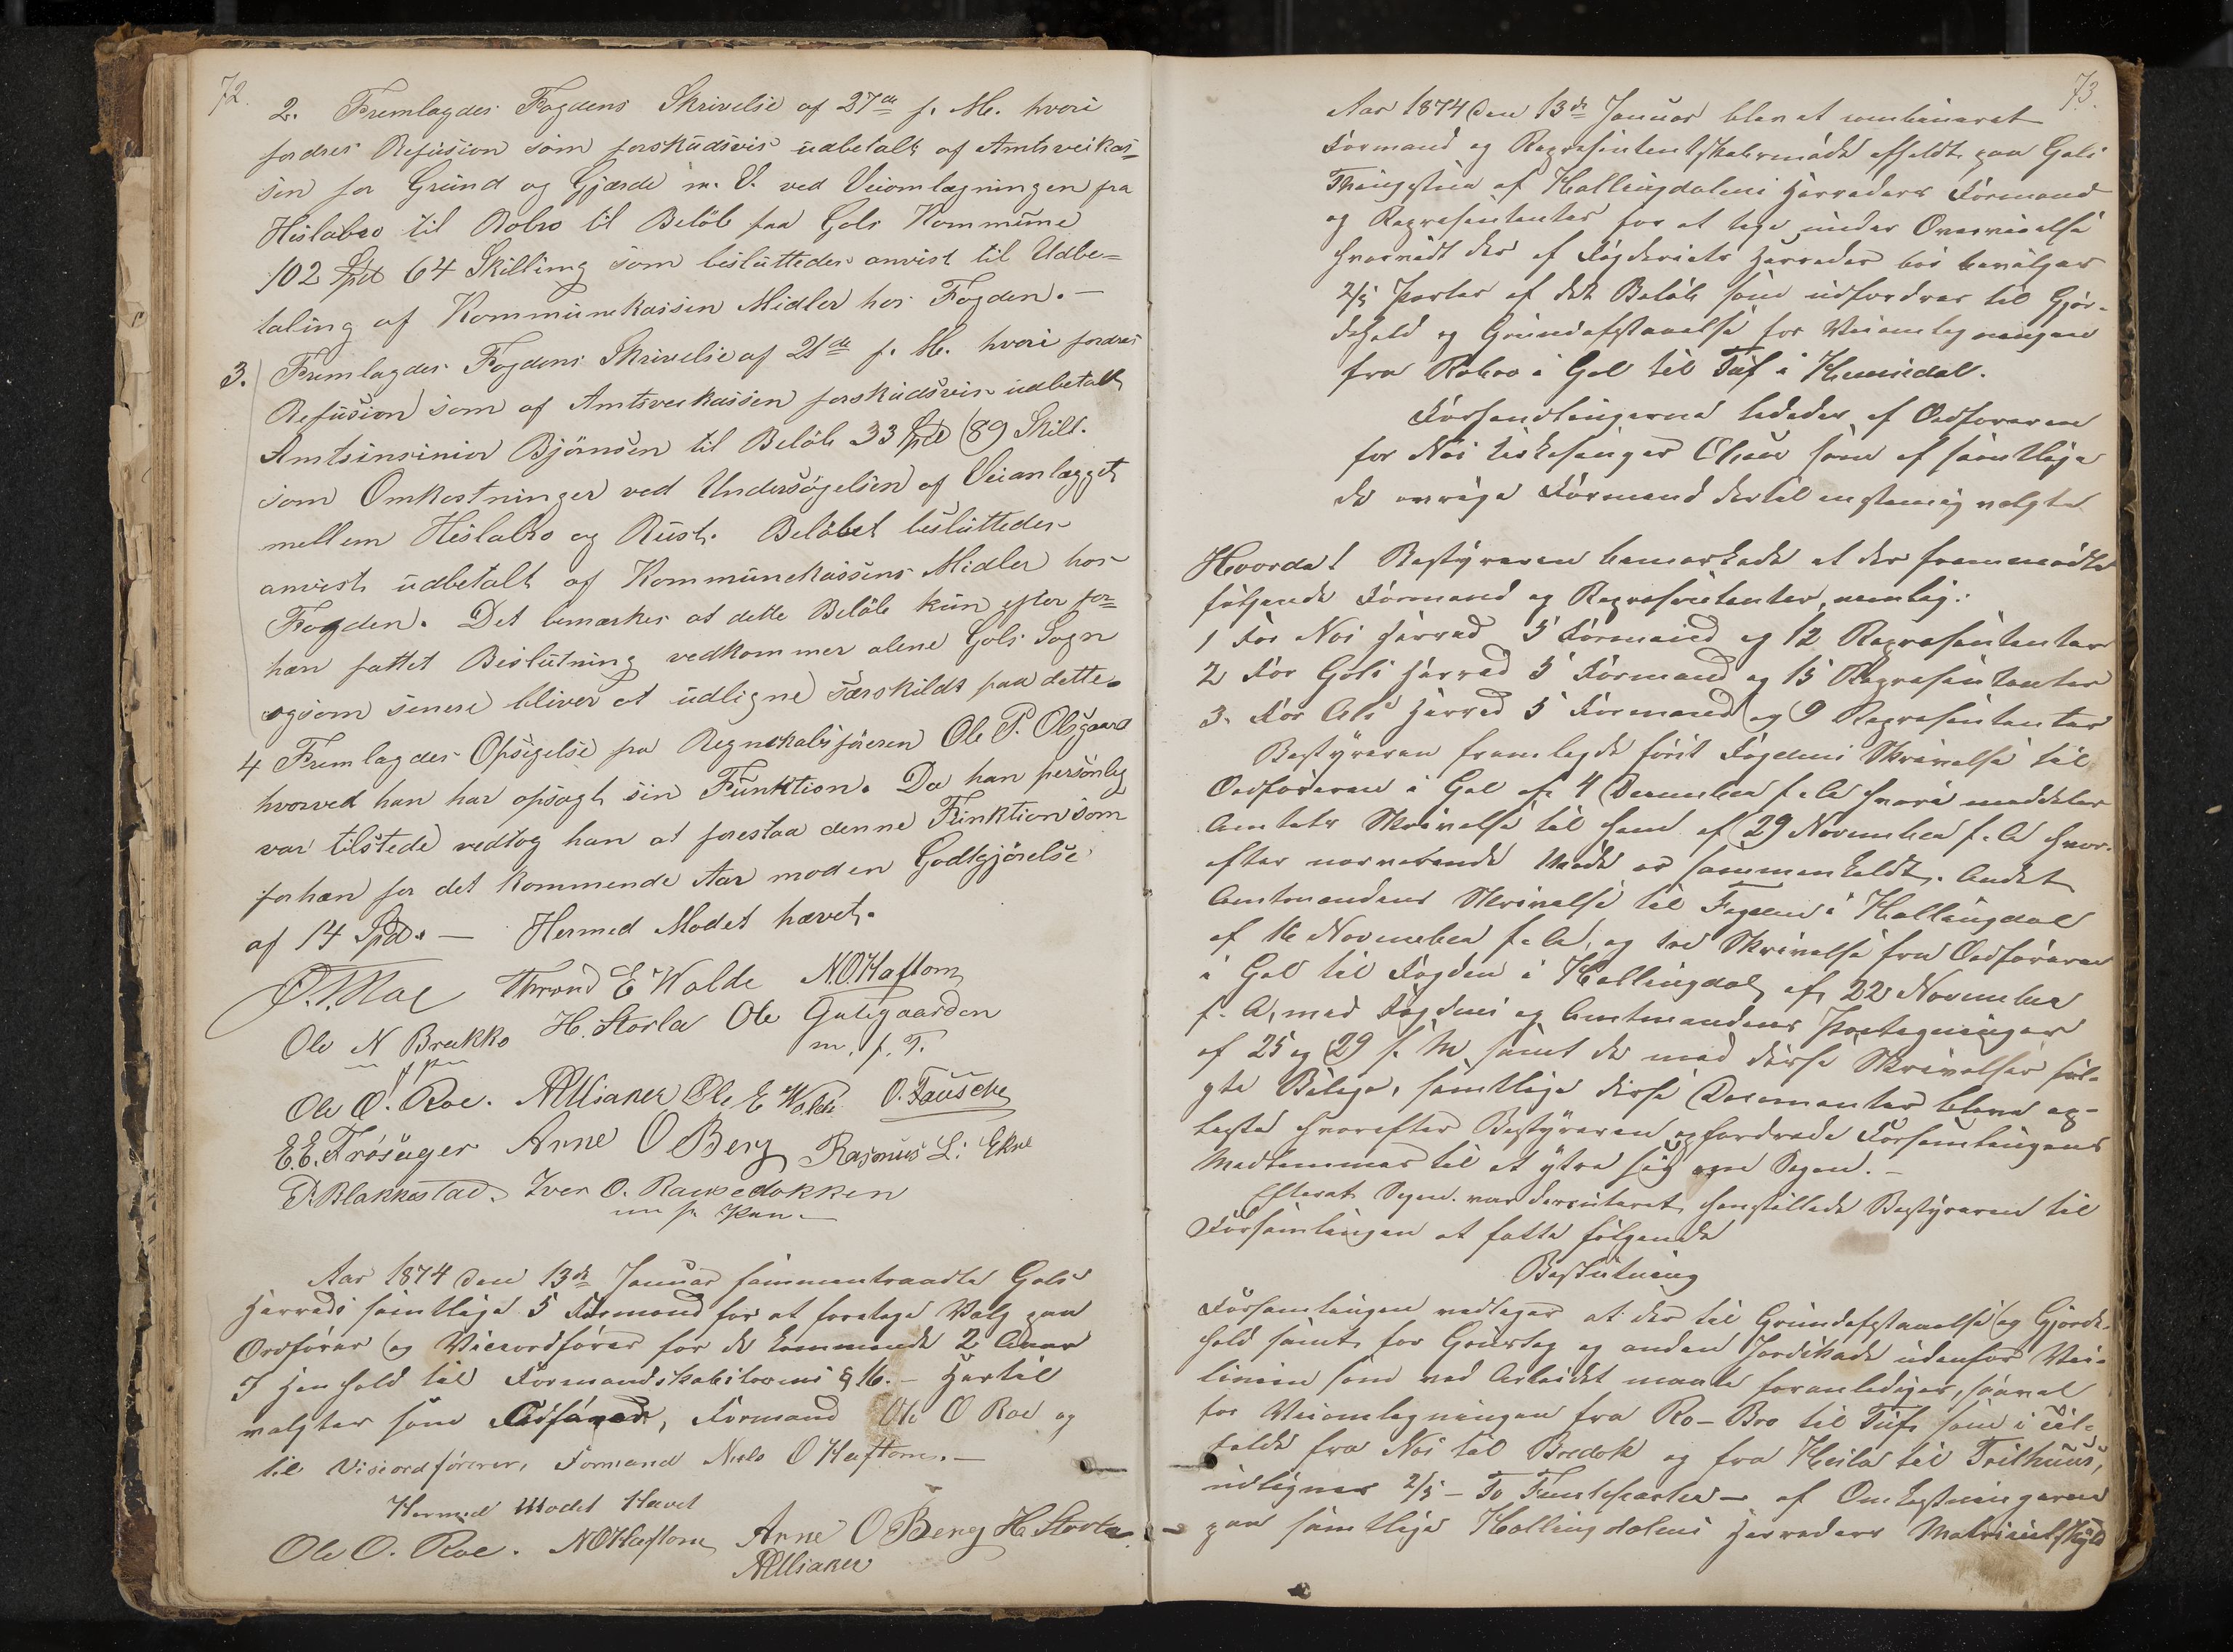 72.
2. Fremlagdes Fogdens Skrivelse af 27de f. M. hvori
fordres Refusion som forskudsvis udbetalt af Amtsveikas-
sen for Grund og Gjærde m. V. ved Veiomlægningen fra
Hislabro til Robro til Beløb paa Gols Kommune
102 Spd 64 Skilling som besluttedes anvist til Udbe-
taling af Kommunekassen Midler hos Fogden. —
3. Fremlagdes Fogdens Skrivelse af 21de f. M. hvori fordres
Refusion som af Amtsveikassen forskudsvis udbetalt
Amtsinsiniør Bjørnsen til Beløb 33 Spd 89 Skill.
som Omkostninger ved Undersøgelsen af Veianlægget
mellem Hislabro og Rust. Beløbet besluttedes
anvist udbetalt af Kommunekassens Midler hos
Fogden. Det bemærkes at dette Beløb kun efter for-
hæn fattet Beslutning vedkommer alene Gols Sogn
ogsom senere bliver at udligne særskildt paa dette.
4 Fremlagdes Opsigelse fra Regnskabsføreren Ole P. Olsgaard
hvorved han har opsagt sin Funktion. Da han personlig
var tilstede vedtog han at forestaa denne Funktion som
forhæn for det kommende Aar mod en Godtgjørelse
af 14 Spd. — Hermed Modet hævet.
Thrond E Wolde N.O. Haftorn
Ole N Brekko H. Storla Ole Gutegaarden
m. f. P.
Ole O. Roe. Ole E Wolde
E.E. Trøsager Arne O Berg Rasmus L. Ekre
P. Blakkestad. Iver O.
m p Pen.
Aar 1874 den 13de Januar sammentraadte Gols
Herreds samtlige 5 Formænd for at foretage Valg paa
Ordfører og Viceordfører for de kommende 2 Aar
I Henhold til Formandskabslovens § 16. — Hertil
valgtes som Ordfører, Formand Ole O Roe og
til Viseordfører, Formand Niels O Haftorn. —
Hermed Modet Hævet
Ole O. Roe. N O Haftorn Arne O Berg H. Storla
73.
Aar 1874 den 13de Januar blev et combineret
Formand og Repræsententskabsmøde afholdt paa Gols
Thingstue af Hallingdalens Herreders Formænd
og Repræsentanter for at tage under Overveielse
hvorvidt der af Fogderiets Herreder bør bevilges
2/5 Parter af det Beløb som udfordres til Gjær-
dehold og Grundafstaaelse for Veiomlægningen
fra Robro i Gol til Tuf i Hemsedal.
Forhandlingerne lededes af Ordføreren
for Næs Olsen som af samtlige
de øvrige Formænd dertil enstemig valgte
Hvorda! Bestyreren bemærkede at der fremmødte
følgende Formænd og Repræsentanter, nemlig:
1 For Næs Herred 5 Formænd og 12 Repræsentanter
2 For Gols Herred 5 Formænd og 15 Repræsentanter
3. For Als Herred 5 Formænd og 9 Repræsentanter
Bestyreren fremlagde først Fogdens Skrivelse til
Ordføreren i Gol af 4 December f. A hvori meddeles
Amtets Skrivelse til ham af 29 November f. A hvor-
efter nærværende Møde er sammenkaldt. Andet
Amtmandens Skrivelse til Fogden i Hallingdal
af 16 November f. A, og tre Skrivelse fra Ordføreren
i Gol til Fogden i Hallingdal af 22 November
f. A, med Fogdens og Amtmandens Paategninger
af 25 og 29 s. M samt de med disse Skrivelser ful-
gte Bilage, samtlige disse Documenter bleve op-
læste hvorefter Bestyreren opfordrede Forsamlingens
Medlemmer til at ytre sig om Sagen. —
Efterat Sagen var discuteret henstillede Bestyreren til
Forsamlingen at fatte følgende
Beslutning
Forsamlingen vedtager at der til Grundafstaaelse og Gjærde-
hold samt for Gruustag og anden Jordskade udenfor Vei-
linien som ved Arbeidet maate foranlediges, saavel
for Veiomlægningen fra Ro-Bro til Tuf som i Til-
fælde fra Næs til Bredok og fra Heila til Troilhuus,
udlignes 2/5 — To Femteparter — af Omkostningerne
paa samtlige Hallingdalens Herreders Matriculskyld